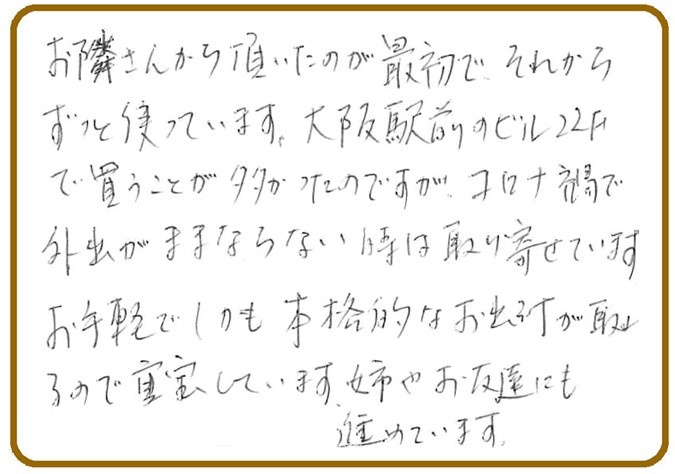 お隣さんから頂いたのが最初で、それから
ずっと使っています。大阪駅前のビル22F
で買うことが多かったのですが、コロナ禍で
外出がままならない時は取り寄せています
お手軽でしかも本格的なお出汁が取れ
るので重宝しています。姉やお友達にも
進めています。